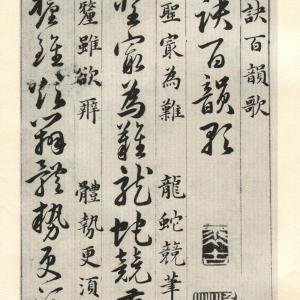 訣百韻歌
訣百韻歌
聖㝡為難 龍蛇競筆
聖㝡為難龍蛇競
釐雖欲辨 體勢更須
釐雖欲辨體勢更須